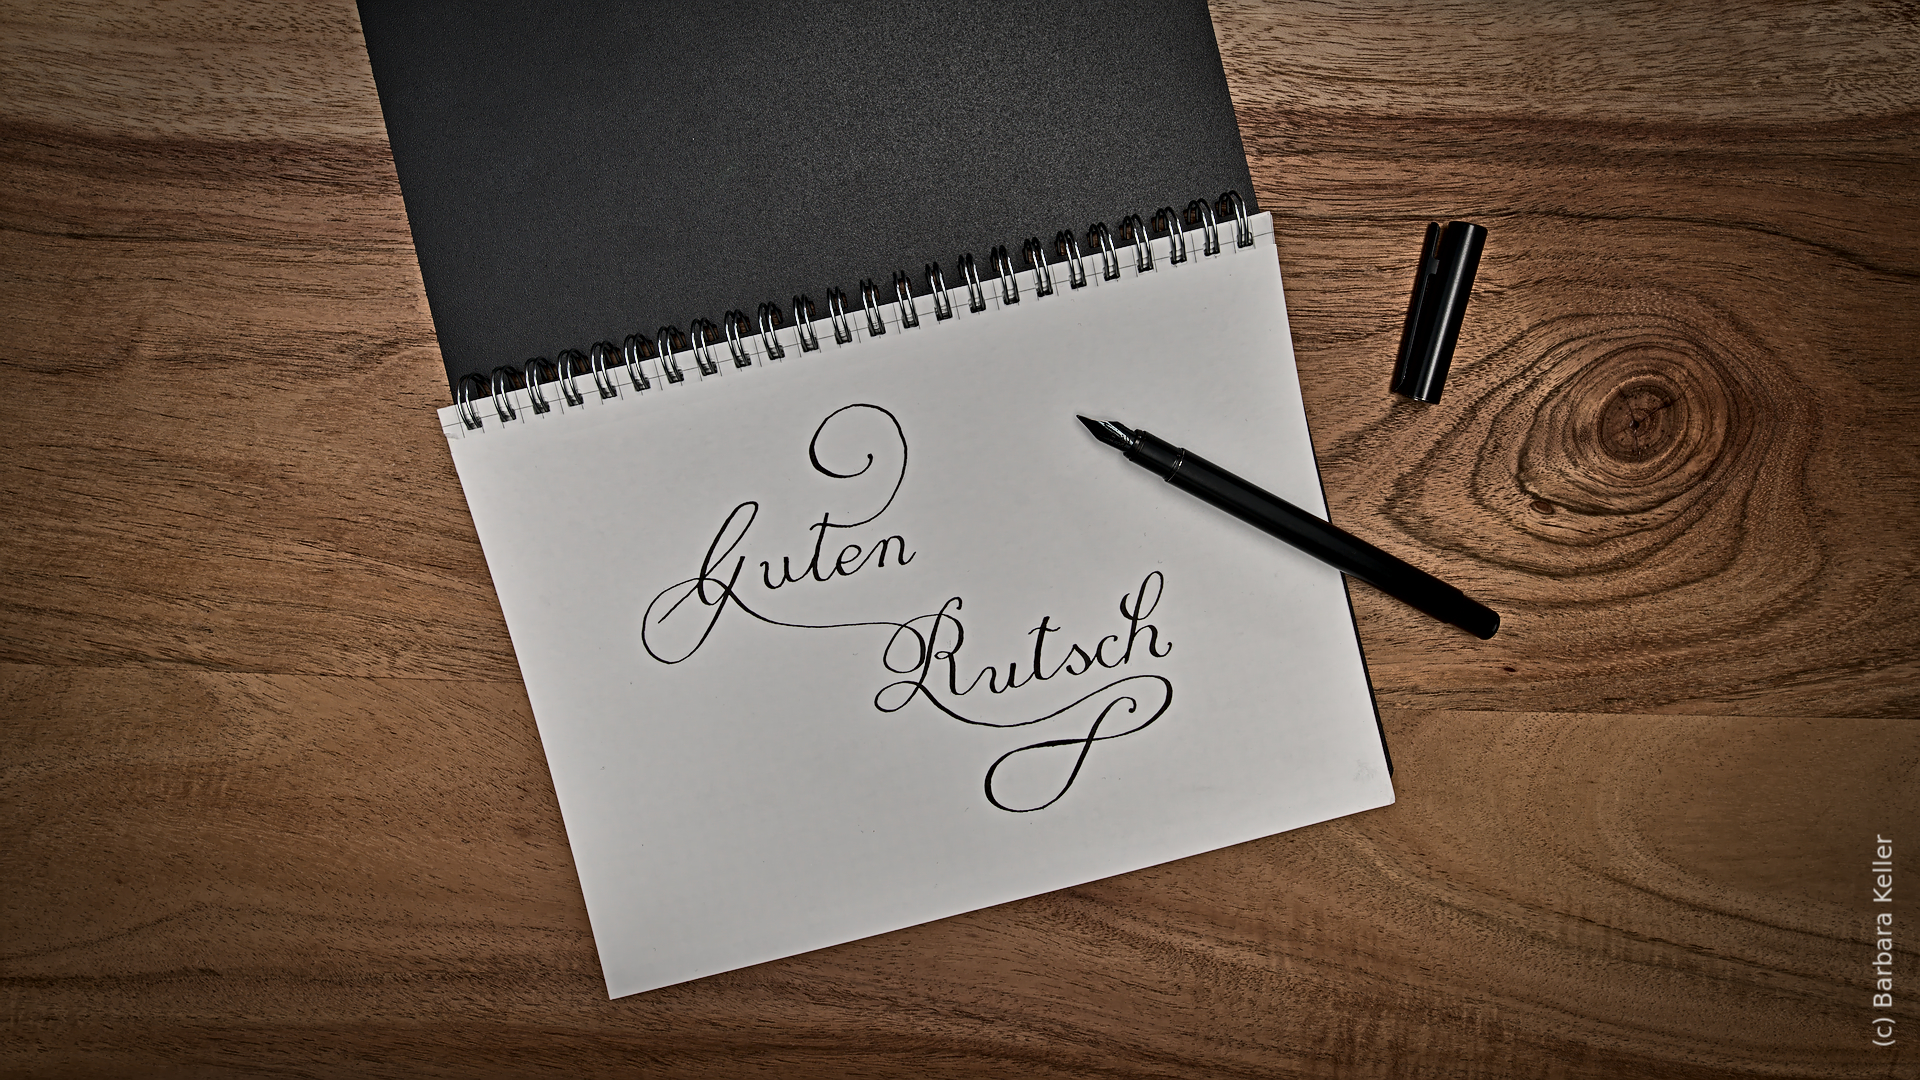 Guten
Rutsch
(c) Barbara Keller